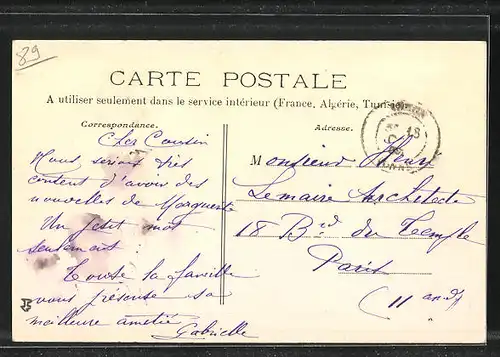 89
CARTE POSTALE
A utiliser seulement dans le service intérieur (France, Algérie, Tunisie
Correspondance.
Adresse.
Cher Cousin
Nous serions très
content d'avoir des
nouvelles de Marguerite
Un petit mot
seulement.
Toute la famille
vous présente sa
meilleure amitié
Gabrielle
Monsieur Henri
Lemaire Architecte
18 Bd du Temple
Paris
(11 arrdt
18
YONNE